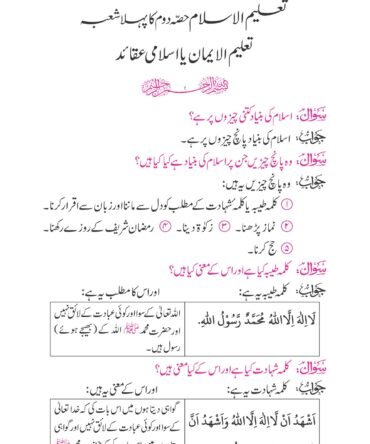 تعلیم الاسلام حصّہ دوم کا پہلا شعبہ
تعلیم الایمان یا اسلامی عقائد
سوال: اسلام کی بنیاد کتنی چیزوں پر ہے؟
جواب: اسلام کی بنیاد پانچ چیزوں پر ہے۔
سوال: وہ پانچ چیزیں جن پر اسلام کی بنیاد ہے کیا کیا ہیں؟
جواب: وہ پانچ چیزیں یہ ہیں:
① کلمہ طیبہ یا کلمۂ شہادت کے مطلب کو دل سے ماننا اور زبان سے اقرار کرنا۔
② نماز پڑھنا۔ ③ زکوٰۃ دینا۔ ④ رمضان شریف کے روزے رکھنا۔
⑤ حج کرنا۔
سوال: کلمہ طیبہ کیا ہے اور اس کے معنی کیا ہیں؟
جواب: کلمہ طیبہ یہ ہے: اور اس کا مطلب یہ ہے:
لَا اِلٰهَ اِلَّا اللهُ مُحَمَّدٌ رَّسُوْلُ اللهِ.
اللہ تعالیٰ کے سوا اور کوئی عبادت کے لائق نہیں
اور حضرت محمد ﷺ اللہ کے (بھیجے ہوئے)
رسول ہیں۔
سوال: کلمہ شہادت کیا ہے اور اس کے کیا معنی ہیں؟
جواب: کلمہ شہادت یہ ہے: اور اس کے معنی یہ ہیں:
اَشْهَدُ اَنْ لَّا اِلٰهَ اِلَّا اللهُ وَاَشْهَدُ اَنَّ
گواہی دیتا ہوں میں اس بات کی کہ خدا تعالیٰ
کے سوا اور کوئی عبادت کے لائق نہیں اور گواہی